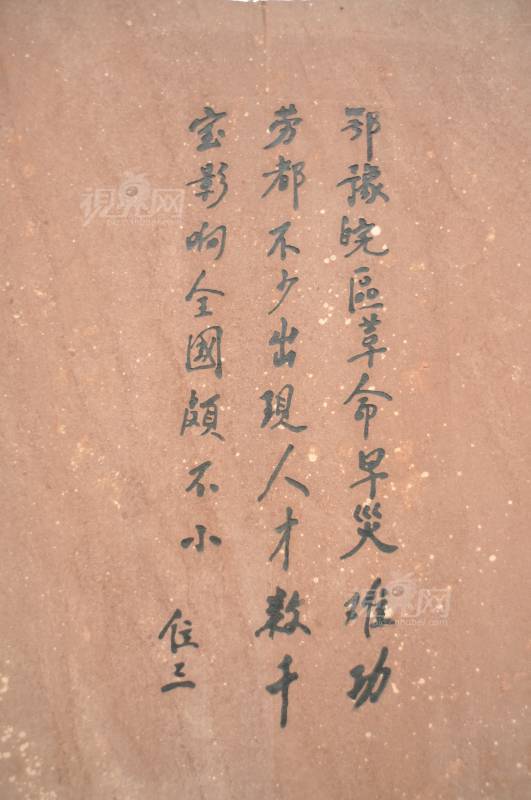 鄂豫皖區革命早災难功
劳都不少出現人才数千
宝影响全國頗不小
位三
視界网
視界网